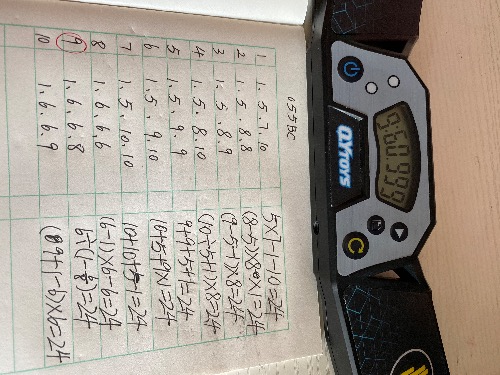 055BC
1 1.5.7.10 5×7-1-10=24
2 1.5.8.8 (8-5)×8×1=24
3 1.5.8.9 (9-5-1)×8=24
4 1.5.8.10 (10-5+1)×8=24
5 1.5.9.9 9+9+5+1=24
6 1.5.9.10 10+5+9×1=24
7 1.5.10.10 10+10+5-1=24
8 1.6.6.6 (6-1)×6-6=24
9 1.6.6.8
10 1.6.6.9
QYTOYS
9:50.999